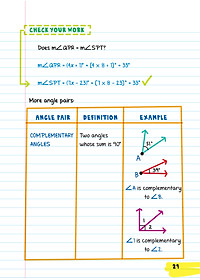 CHECK YOUR WORK
Does m∠QPR = m∠SPT?
m∠QPR = (4x + 1)° = (4 x 8 + 1)° = 33°
m∠SPT = (7x - 23)° = (7 x 8 - 23)° = 33° ✓
More angle pairs:
ANGLE PAIR DEFINITION EXAMPLE
COMPLEMENTARY ANGLES
Two angles whose sum is 90°
51°
A
39°
B
∠A is complementary
to ∠B.
1
2
∠1 is complementary
to ∠2.
29